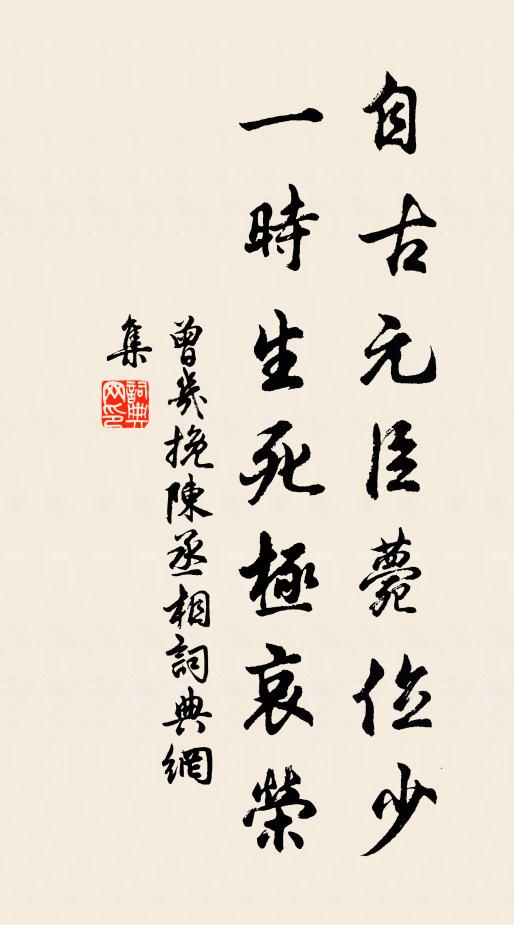 自古元臣薨位少
一時生死極哀榮
曾幾挽陳丞相詞典網
集
詞典
网印